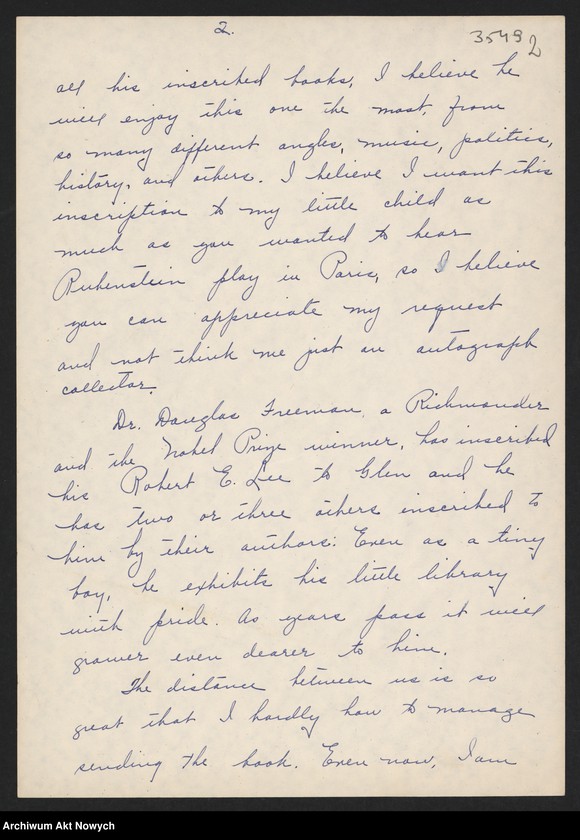 2.
35493
2
all his inscribed books, I believe he
will enjoy this one the most, from
so many different angles, music, politics,
history, and others. I believe I want this
inscription to my little child as
much as you wanted to hear
Rubenstein play in Paris, so I believe
you can appreciate my request
and not think me just an autograph
collector.
Dr. Douglas Freeman, a Richmonder
and the Nobel Prize winner, has inscribed
his Robert E. Lee to Glen and he
has two or three others inscribed to
him by their authors. Even as a tiny
boy, he exhibits his little library
with pride. As years pass it will
grower even dearer to him.
The distance between us is so
great that I hardly how to manage
sending the book. Even now, I am
Archiwum Akt Nowych